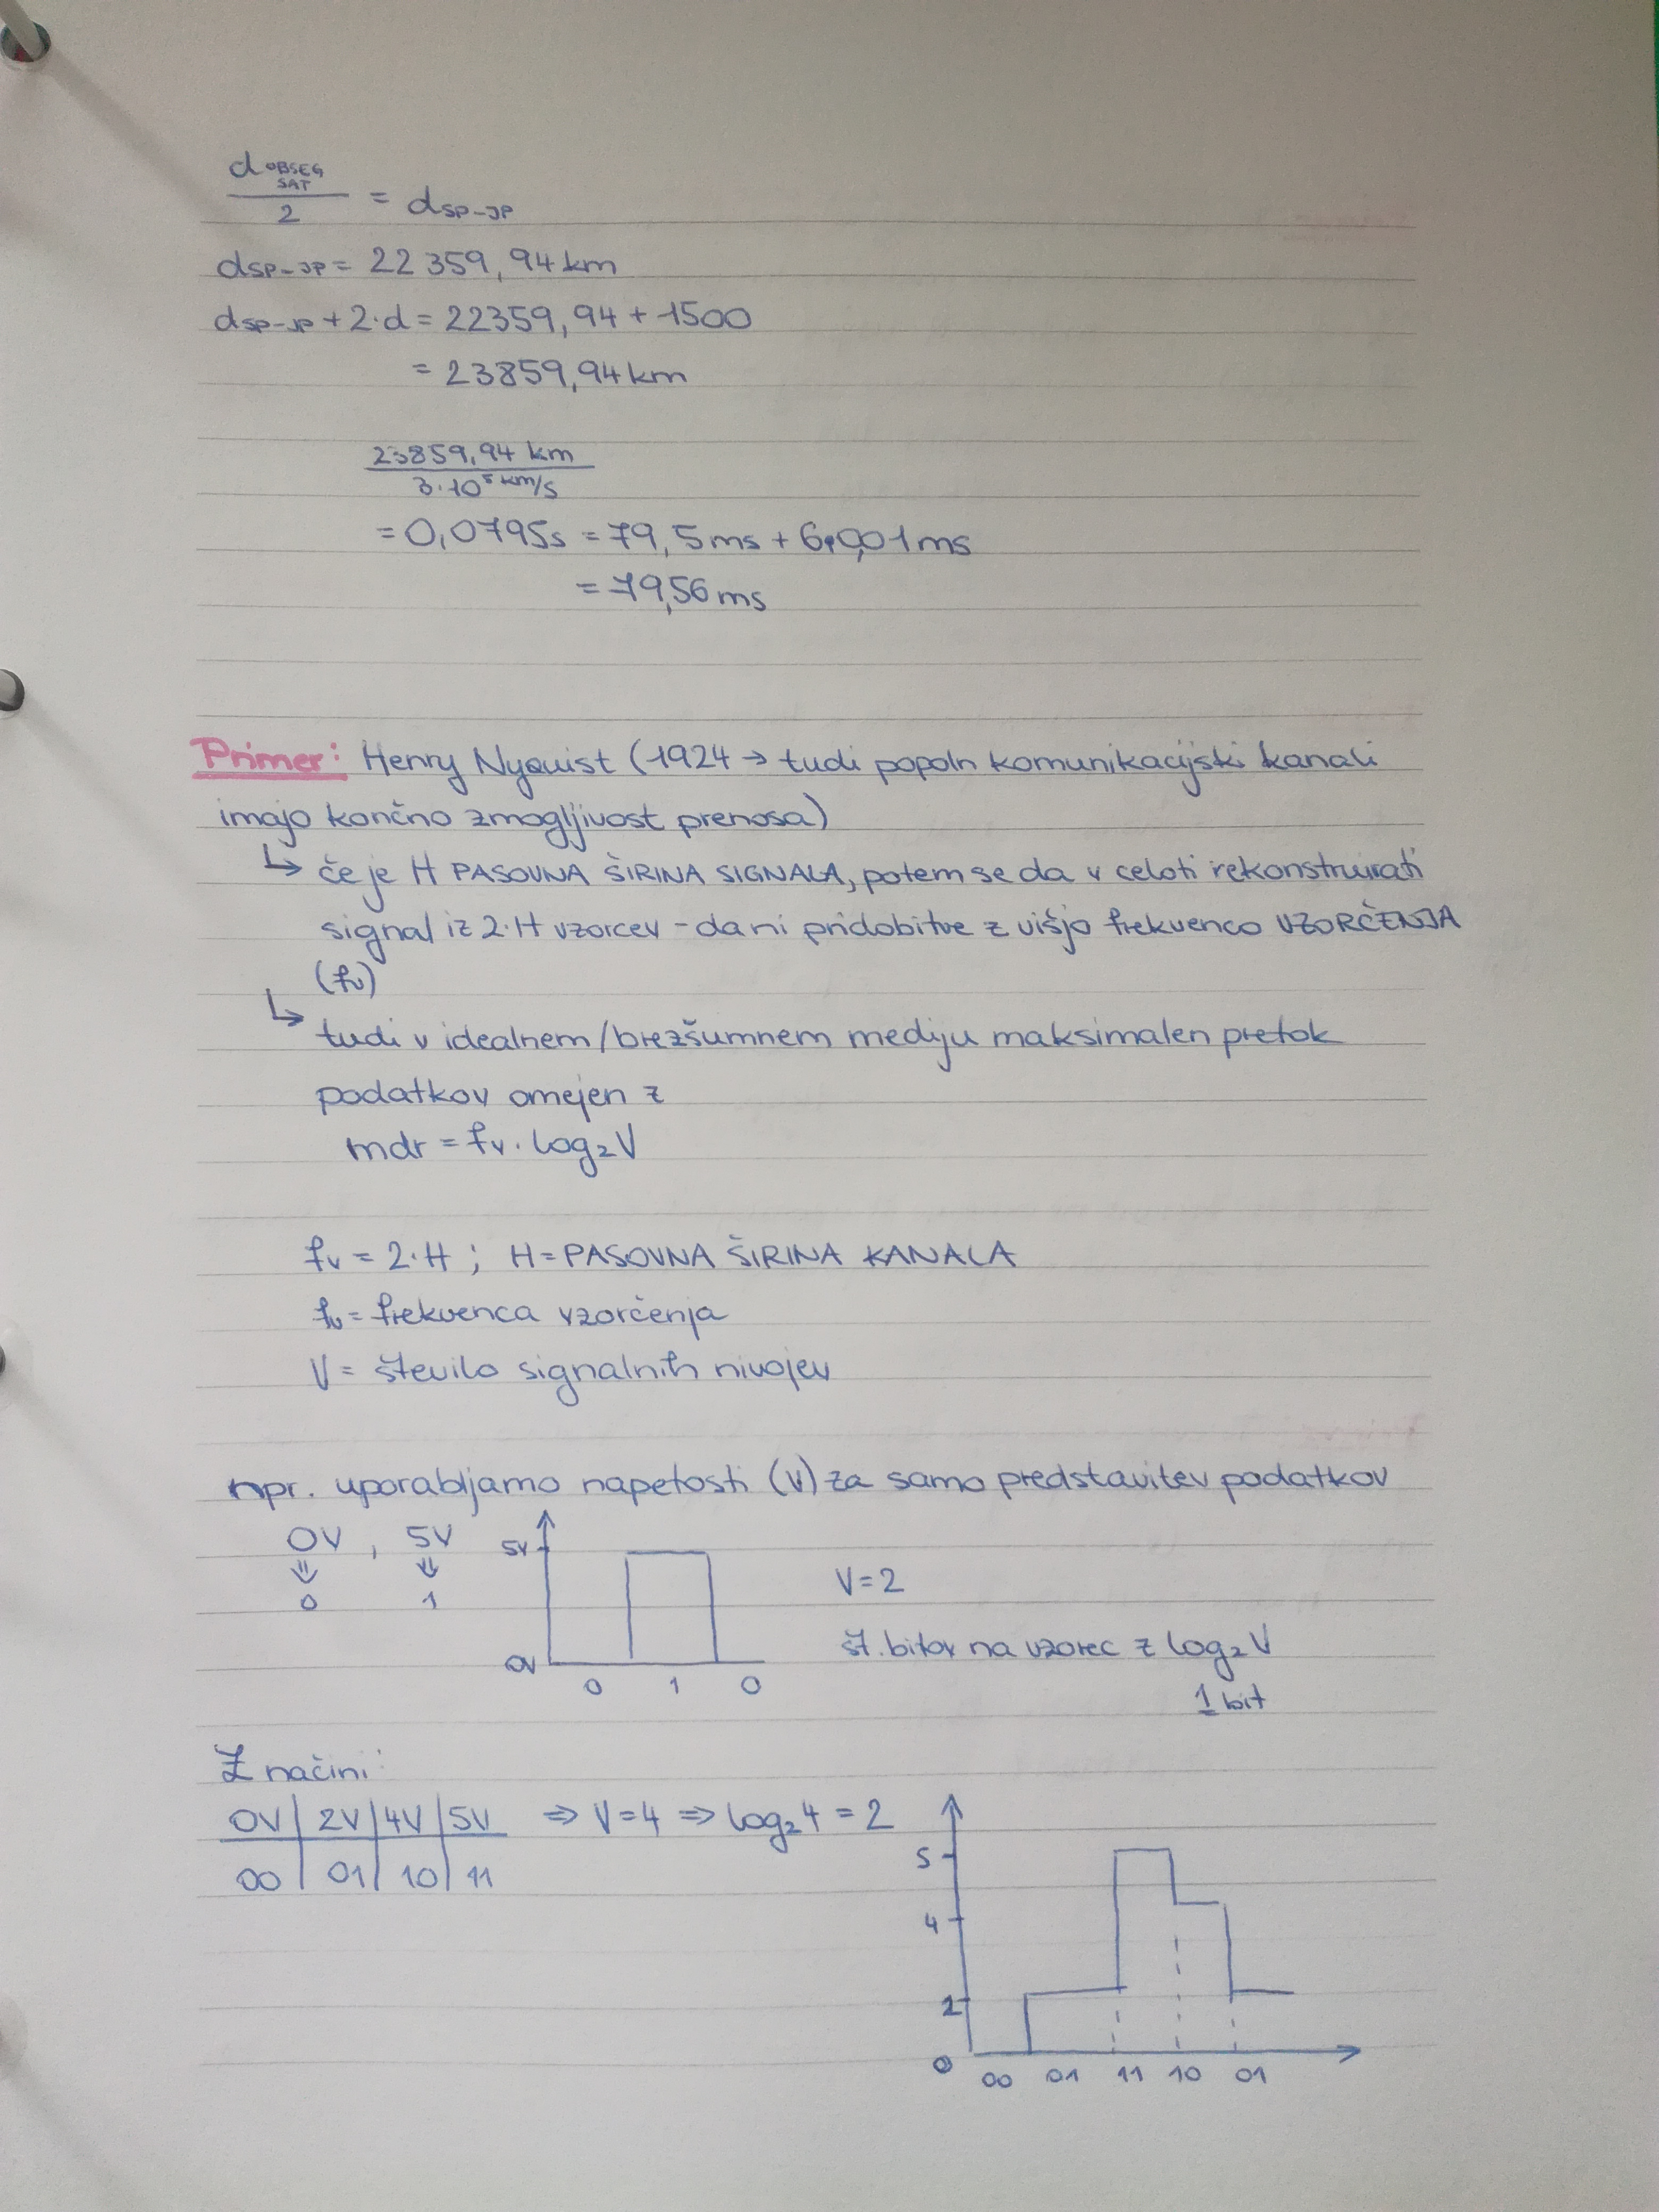 d OBSEG SAT / 2 = d SP-JP
d SP-JP = 22 359,94 km
d SP-JP + 2·d = 22359,94 + 1500
= 23859,94 km
23859,94 km
3·10⁵ km/s
= 0,0795s = 79,5 ms + ms
= 79,56 ms
Primer: Henry Nyquist (1924 → tudi popoln komunikacijski kanali
imajo končno zmogljivost prenosa)
↳ če je H PASOVNA ŠIRINA SIGNALA, potem se da v celoti rekonstruirati
signal iz 2·H vzorcev - da ni pridobitve z višjo frekvenco VZORČENJA
(fv)
↳ tudi v idealnem/brezšumnem mediju maksimalen pretok
podatkov omejen z
mdr = fv · log₂V
fv = 2·H ; H = PASOVNA ŠIRINA KANALA
fv = frekvenca vzorčenja
V = število signalnih nivojev
npr. uporabljamo napetosti (V) za samo predstavitev podatkov
0V , 5V
⇓ ⇓
0 1
5V
0V
0 1 0
V=2
št. bitov na vzorec z log₂V
1 bit
Z načini:
0V | 2V | 4V | 5V ⇒ V=4 ⇒ log₂4 = 2
00 | 01 | 10 | 11
5
4
2
0
00 01 11 10 01